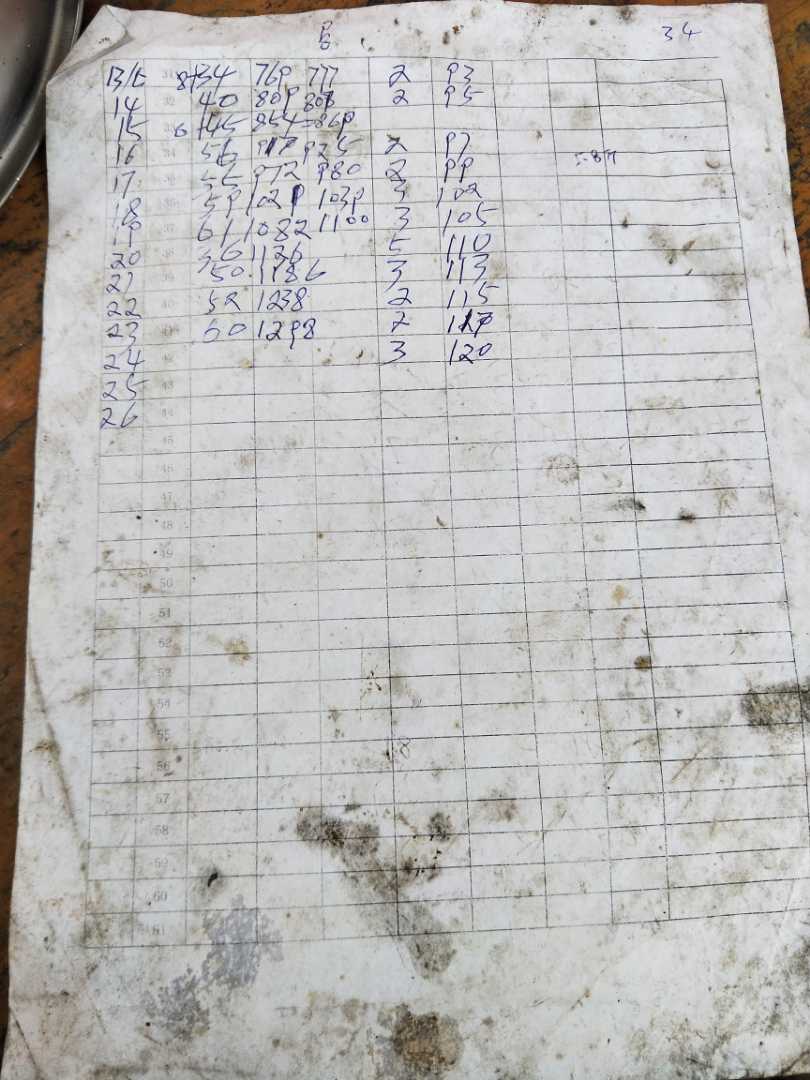 34
13/6 31 8+34 769 777 2 93
14 32 40 809 808 2 95
15 6+45 854=869
16 34 56 925 2 97
17 35 55 972 980 2 99
18 36 59 1029 1039 3 102
19 37 61 1082 1100 3 105
20 38 36 1126 5 110
21 39 50 1186 3 113
22 40 52 1238 2 115
23 41 60 1298 2 117
24 42 3 120
25 43
26 44
45
46
47
48
49
50
51
52
53
54
55
56
57
58
59
60
61